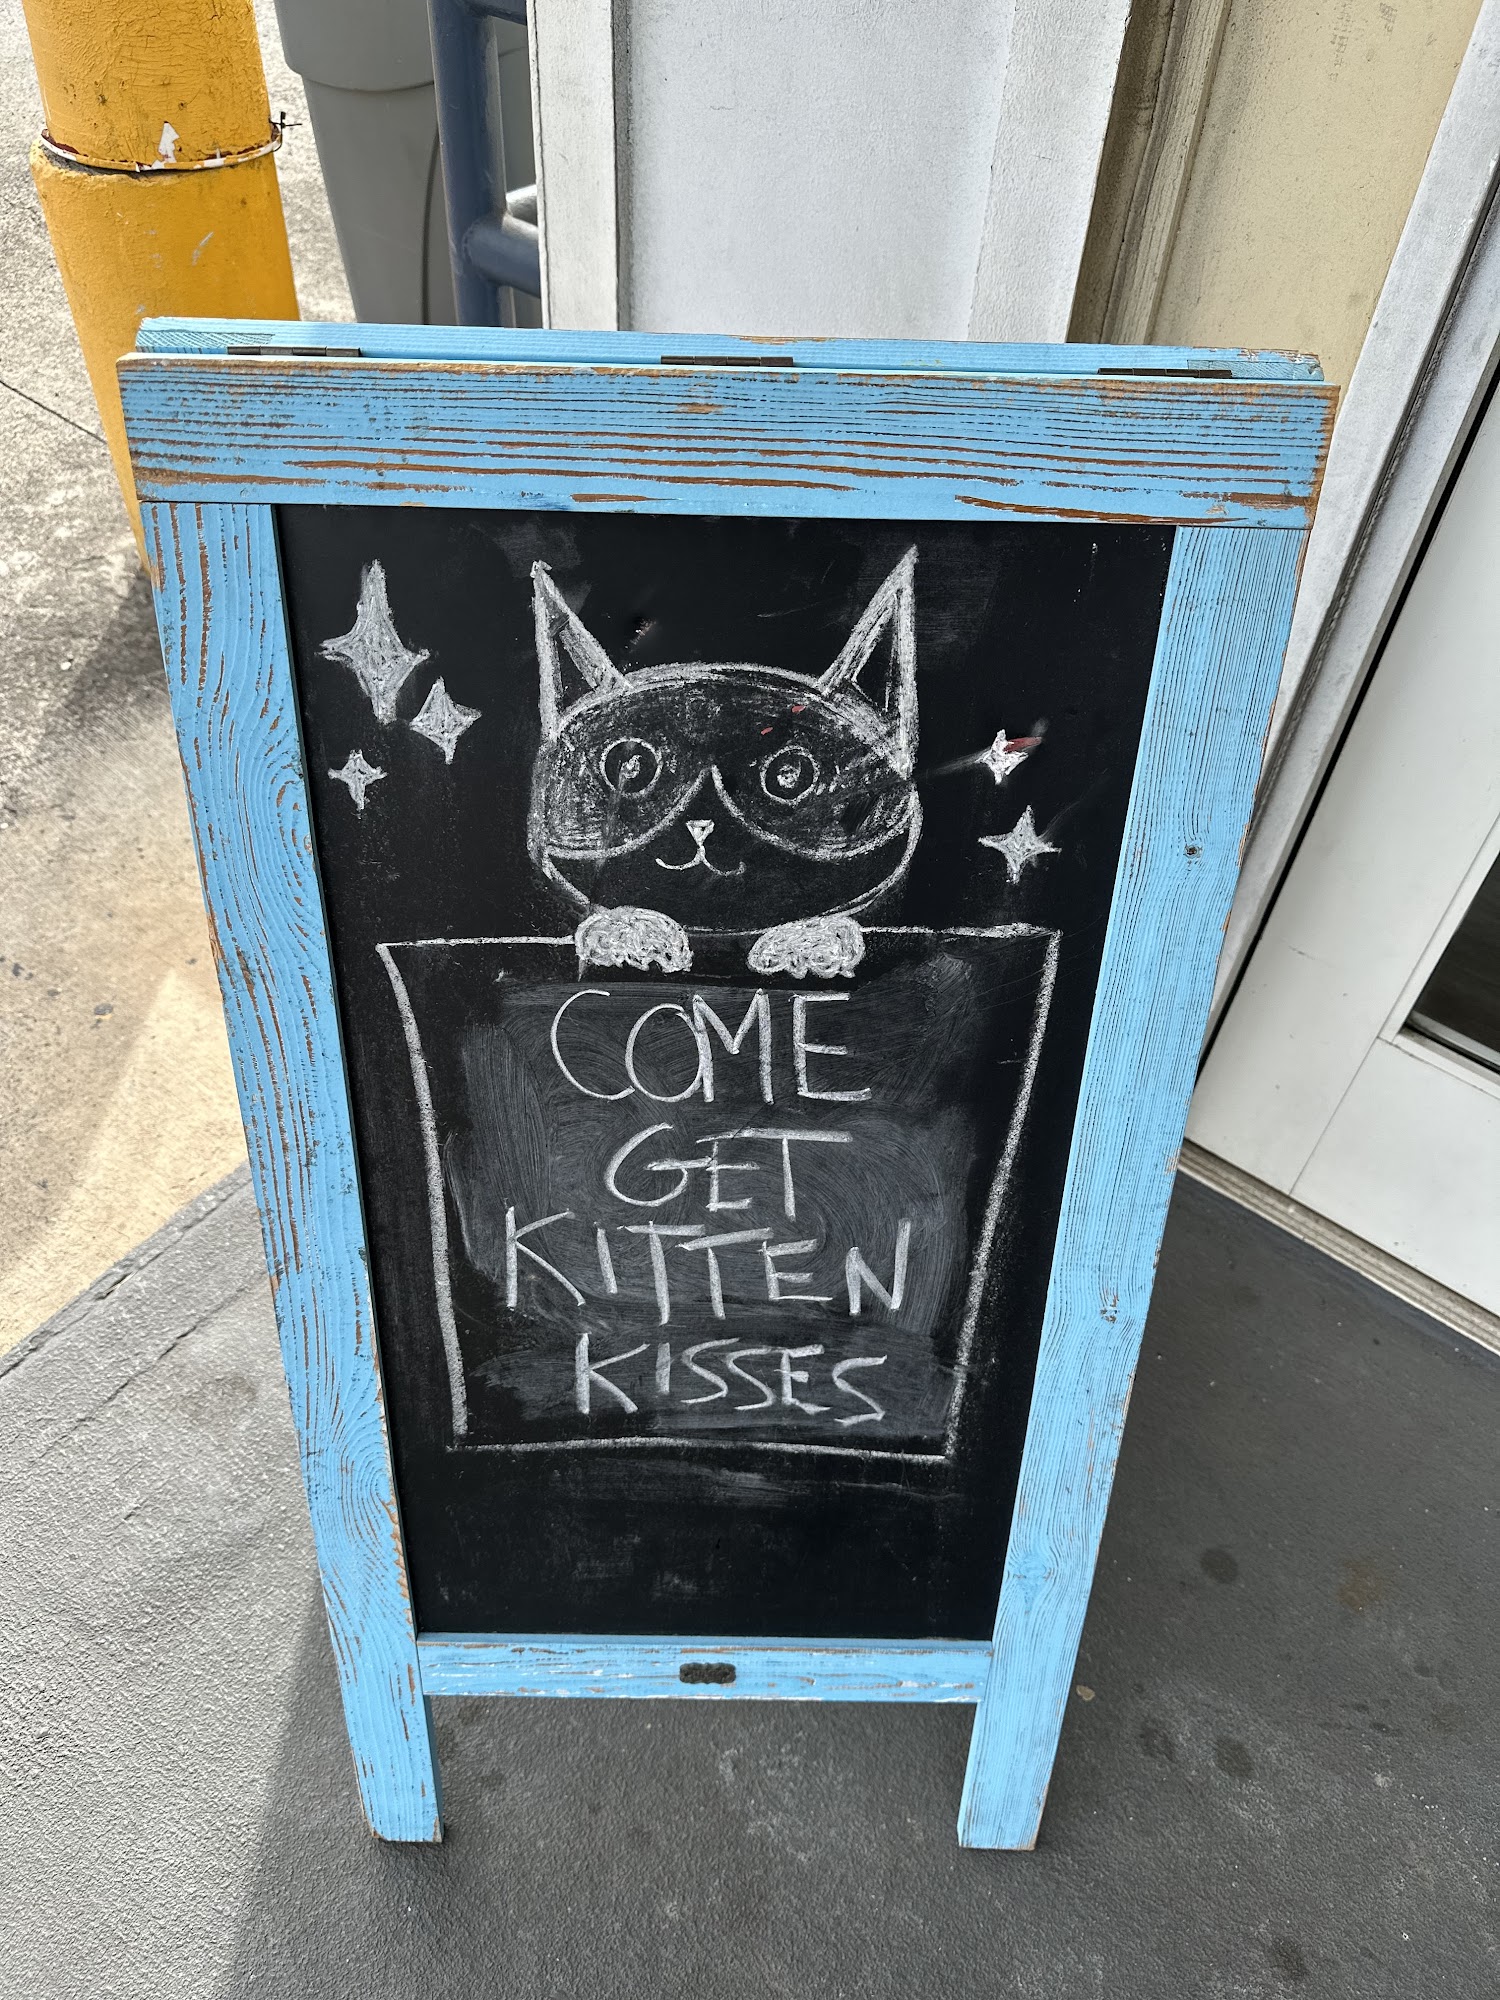 COME
GET
KITTEN
KISSES